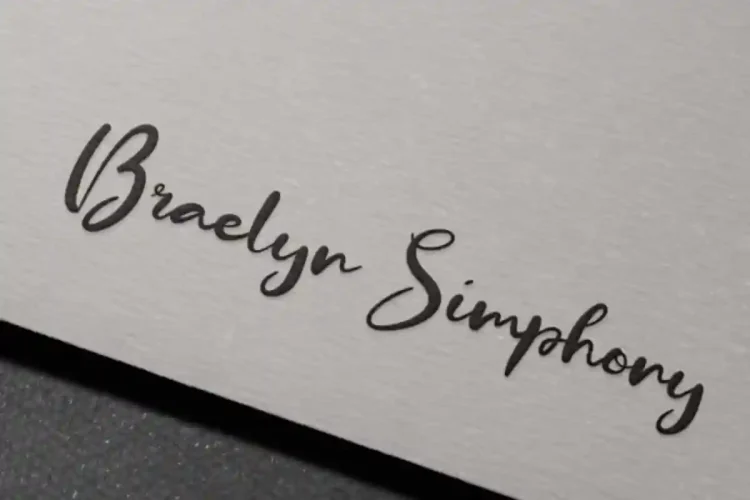 Braelyn Simphony